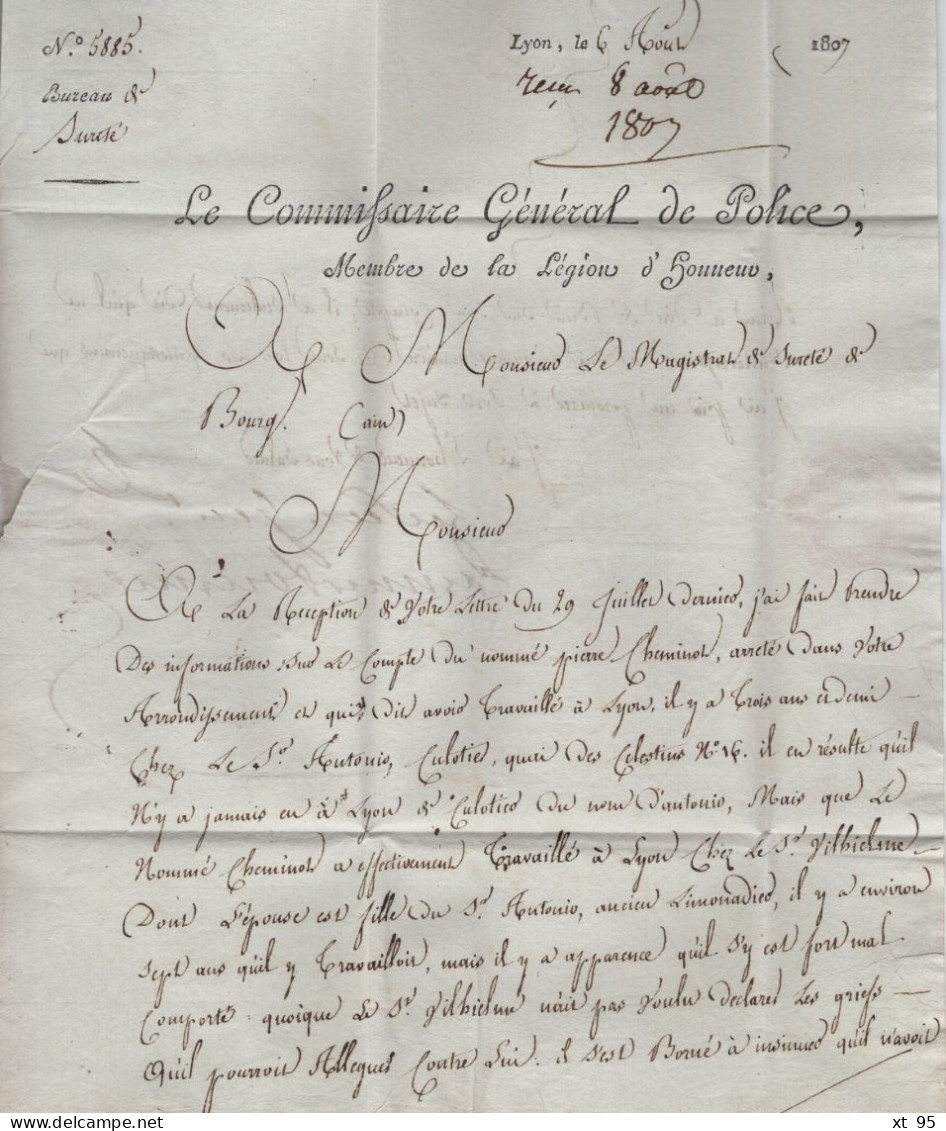 N.o 5885.
Lyon, le 6 Août 1807
Bureau de
Sureté
reçu 8 août
1807
Le Commissaire Général de Police,
Membre de la Légion d'Honneur,
A Monsieur Le Magistrat de Sureté de
Bourg. (ain)
Monsieur
A La Reception de Votre Lettre du 29 Juillet dernier, j'ai fait Prendre
Des informations sur Le Compte du nommé pierre Cheminot, arreté dans Votre
Arrondissement et qui dit avoir Travaillé à Lyon, il y a Trois ans et demi –
Chez Le Sr. Antonio, Culotier, quai des Celestins No. 16. il en résulte qu'il
N'y a jamais eu à Lyon de Culotier du nom d'antonio, Mais que Le
Nommé Cheminot a effectivement Travaillé à Lyon Chez Le Sr. Vilhielme –
Dont L'épouse est fille du Sr. Antonio, ancien Limonadier, il y a environ
sept ans qu'il y Travailloit, mais il y a apparence qu'il s'y est fort mal
Comporté quoique Le Sr. Vilhielme n'ait pas Voulu declarer Les griefs –
Qu'il pourroit Alleguer Contre Lui : il s'est Borné à insinuer qu'il n'avoit
xt 95